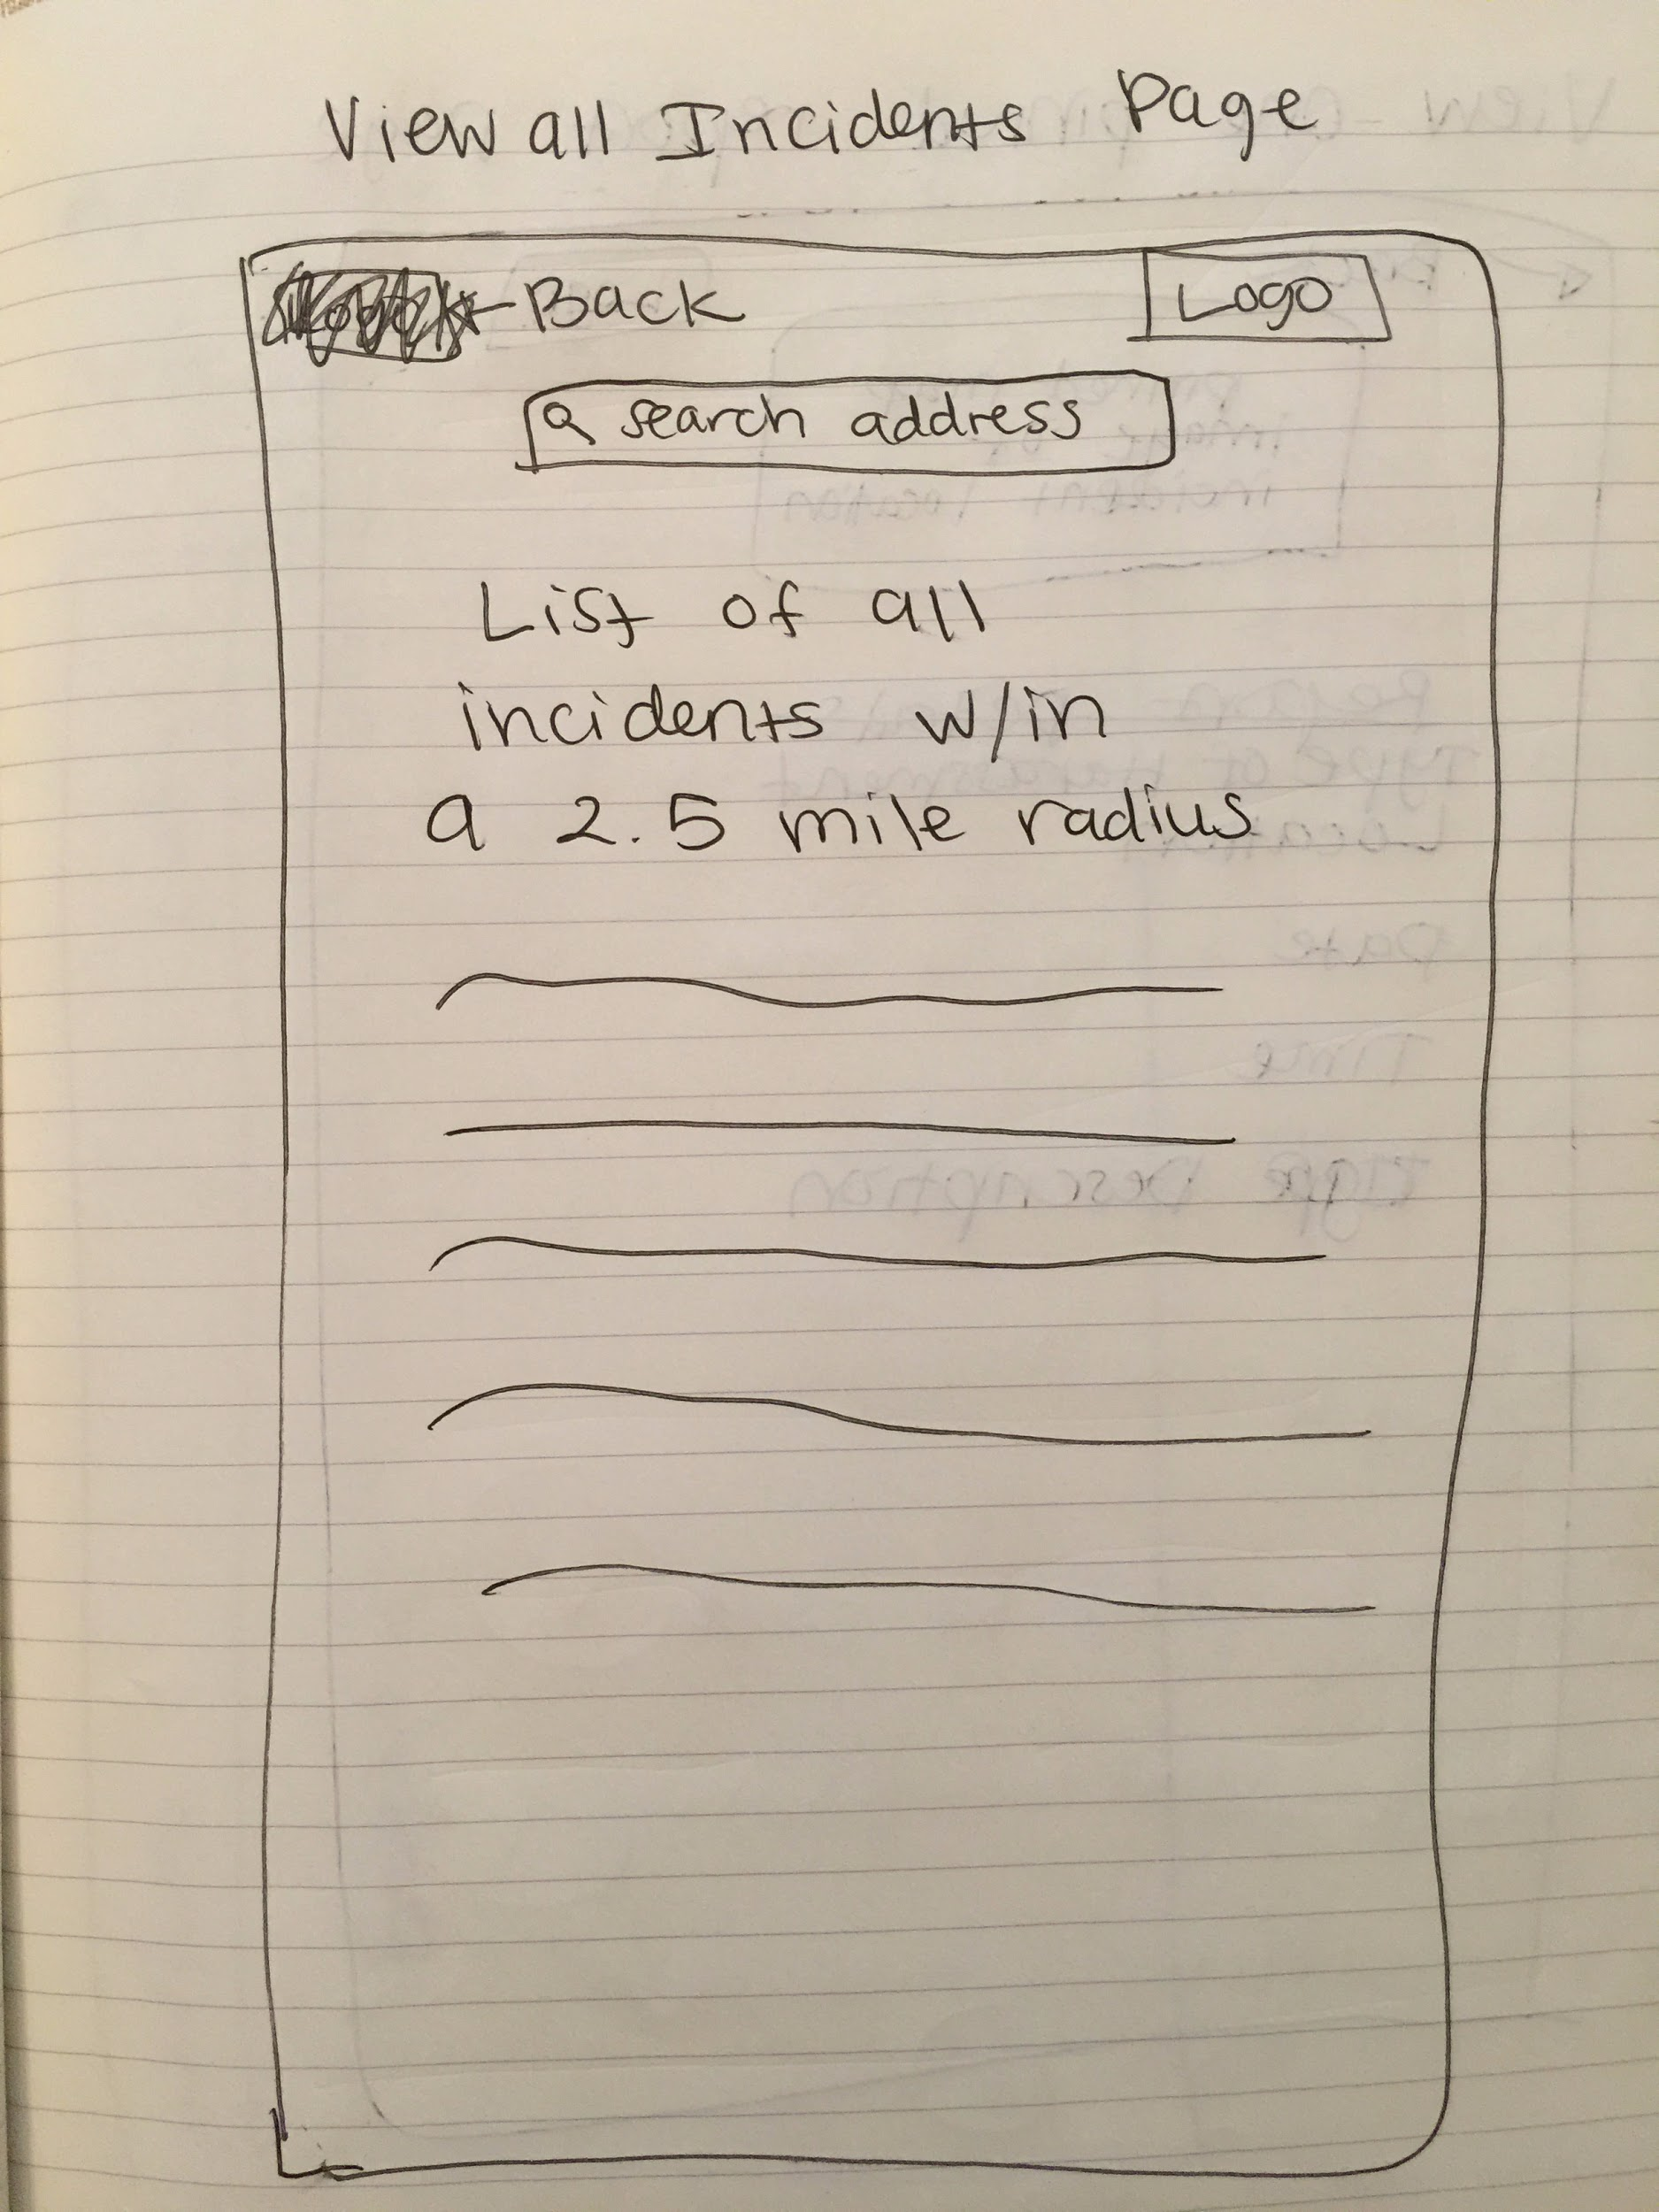 View all Incidents Page
Back
Logo
search address
List of all
incidents w/in
a 2.5 mile radius